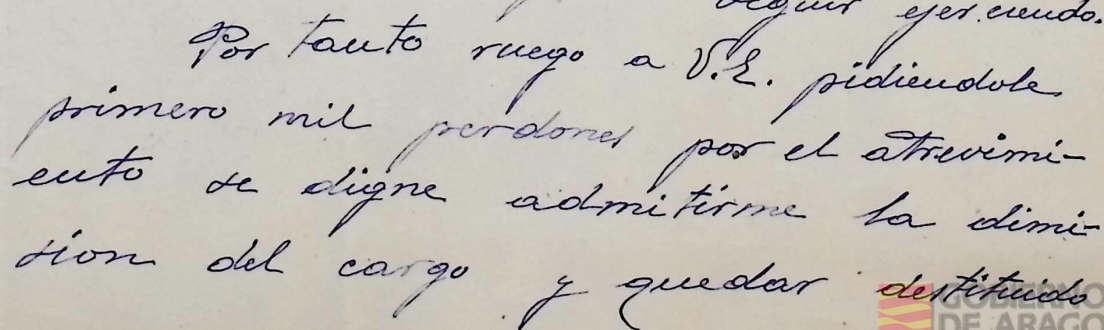 seguir ejerciendo.
Por tanto ruego a V.E. pidiendole
primero mil perdones por el atrevimi-
ento se digne admitirme la dimi-
sion del cargo y quedar destituido
GOBIERNO
DE ARAGO